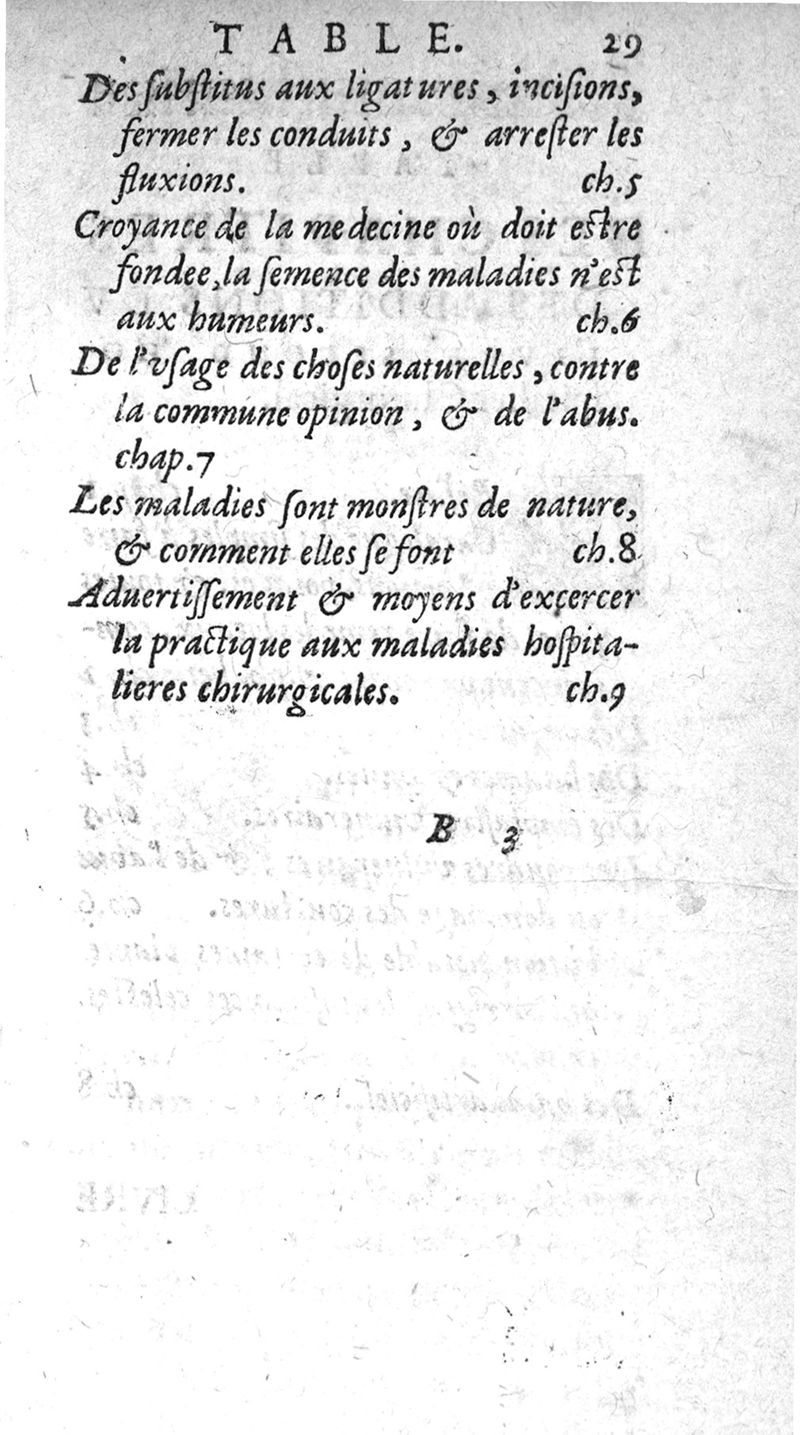 TABLE. 29
Des ſubſtitus aux ligatures, inciſions,
fermer les conduits, & arreſter les
fluxions. ch.5
Croyance de la medecine où doit eſtre
fondee, la ſemence des maladies n'eſt
aux humeurs. ch.6
De l'vſage des choſes naturelles, contre
la commune opinion, & de l'abus.
chap.7
Les maladies ſont monſtres de nature,
& comment elles ſe font ch.8
Aduertiſſement & moyens d'exçercer
la practique aux maladies hoſpita-
lieres chirurgicales. ch.9
B 3